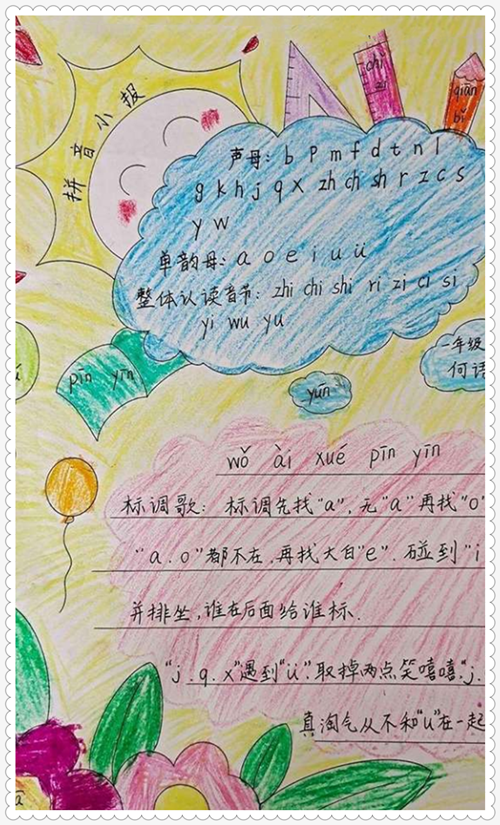 拼音小报
chǐ
zi
qiān
bǐ
声母: b p m f d t n l
g k h j q x zh ch sh r z c s
y w
单韵母: a o e i u ü
整体认读音节: zhi chi shi ri zi ci si
yi wu yu
pīn yīn
yún
一年级
何语
wǒ ài xué pīn yīn
标调歌: 标调先找"a", 无"a"再找"o"
"a.o"都不在,再找大白"e". 碰到"i
并排坐,谁在后面给谁标.
"j.q.x"遇到"ü".取掉两点笑嘻嘻;"j.
真淘气从不和"u"在一起